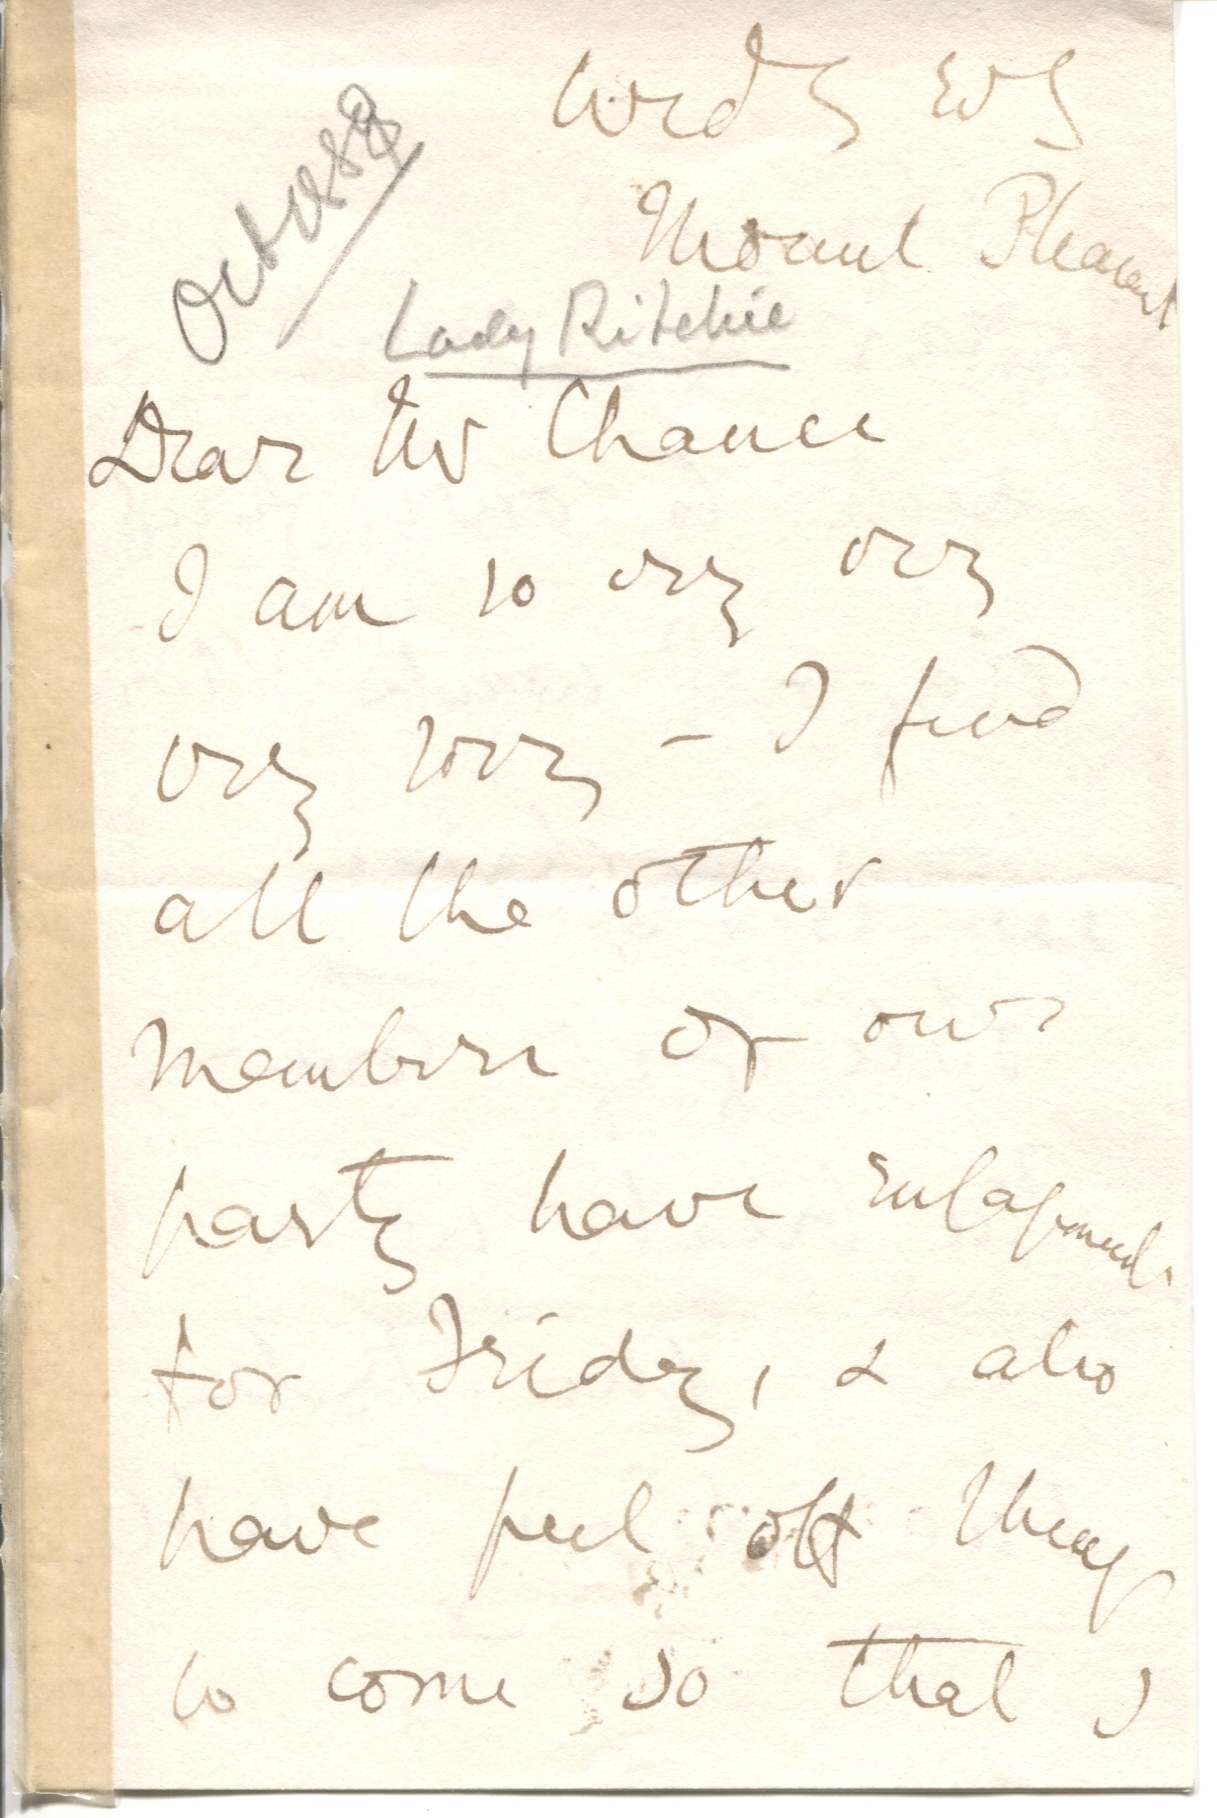 Wedy Evg
Mount Pleasant
Oct 1888
Lady Ritchie
Dear Mr Chance
I am so very very
very sorry – I find
all the other
members of our
party have engagements
for Friday, & also
have put off things
to come so that I